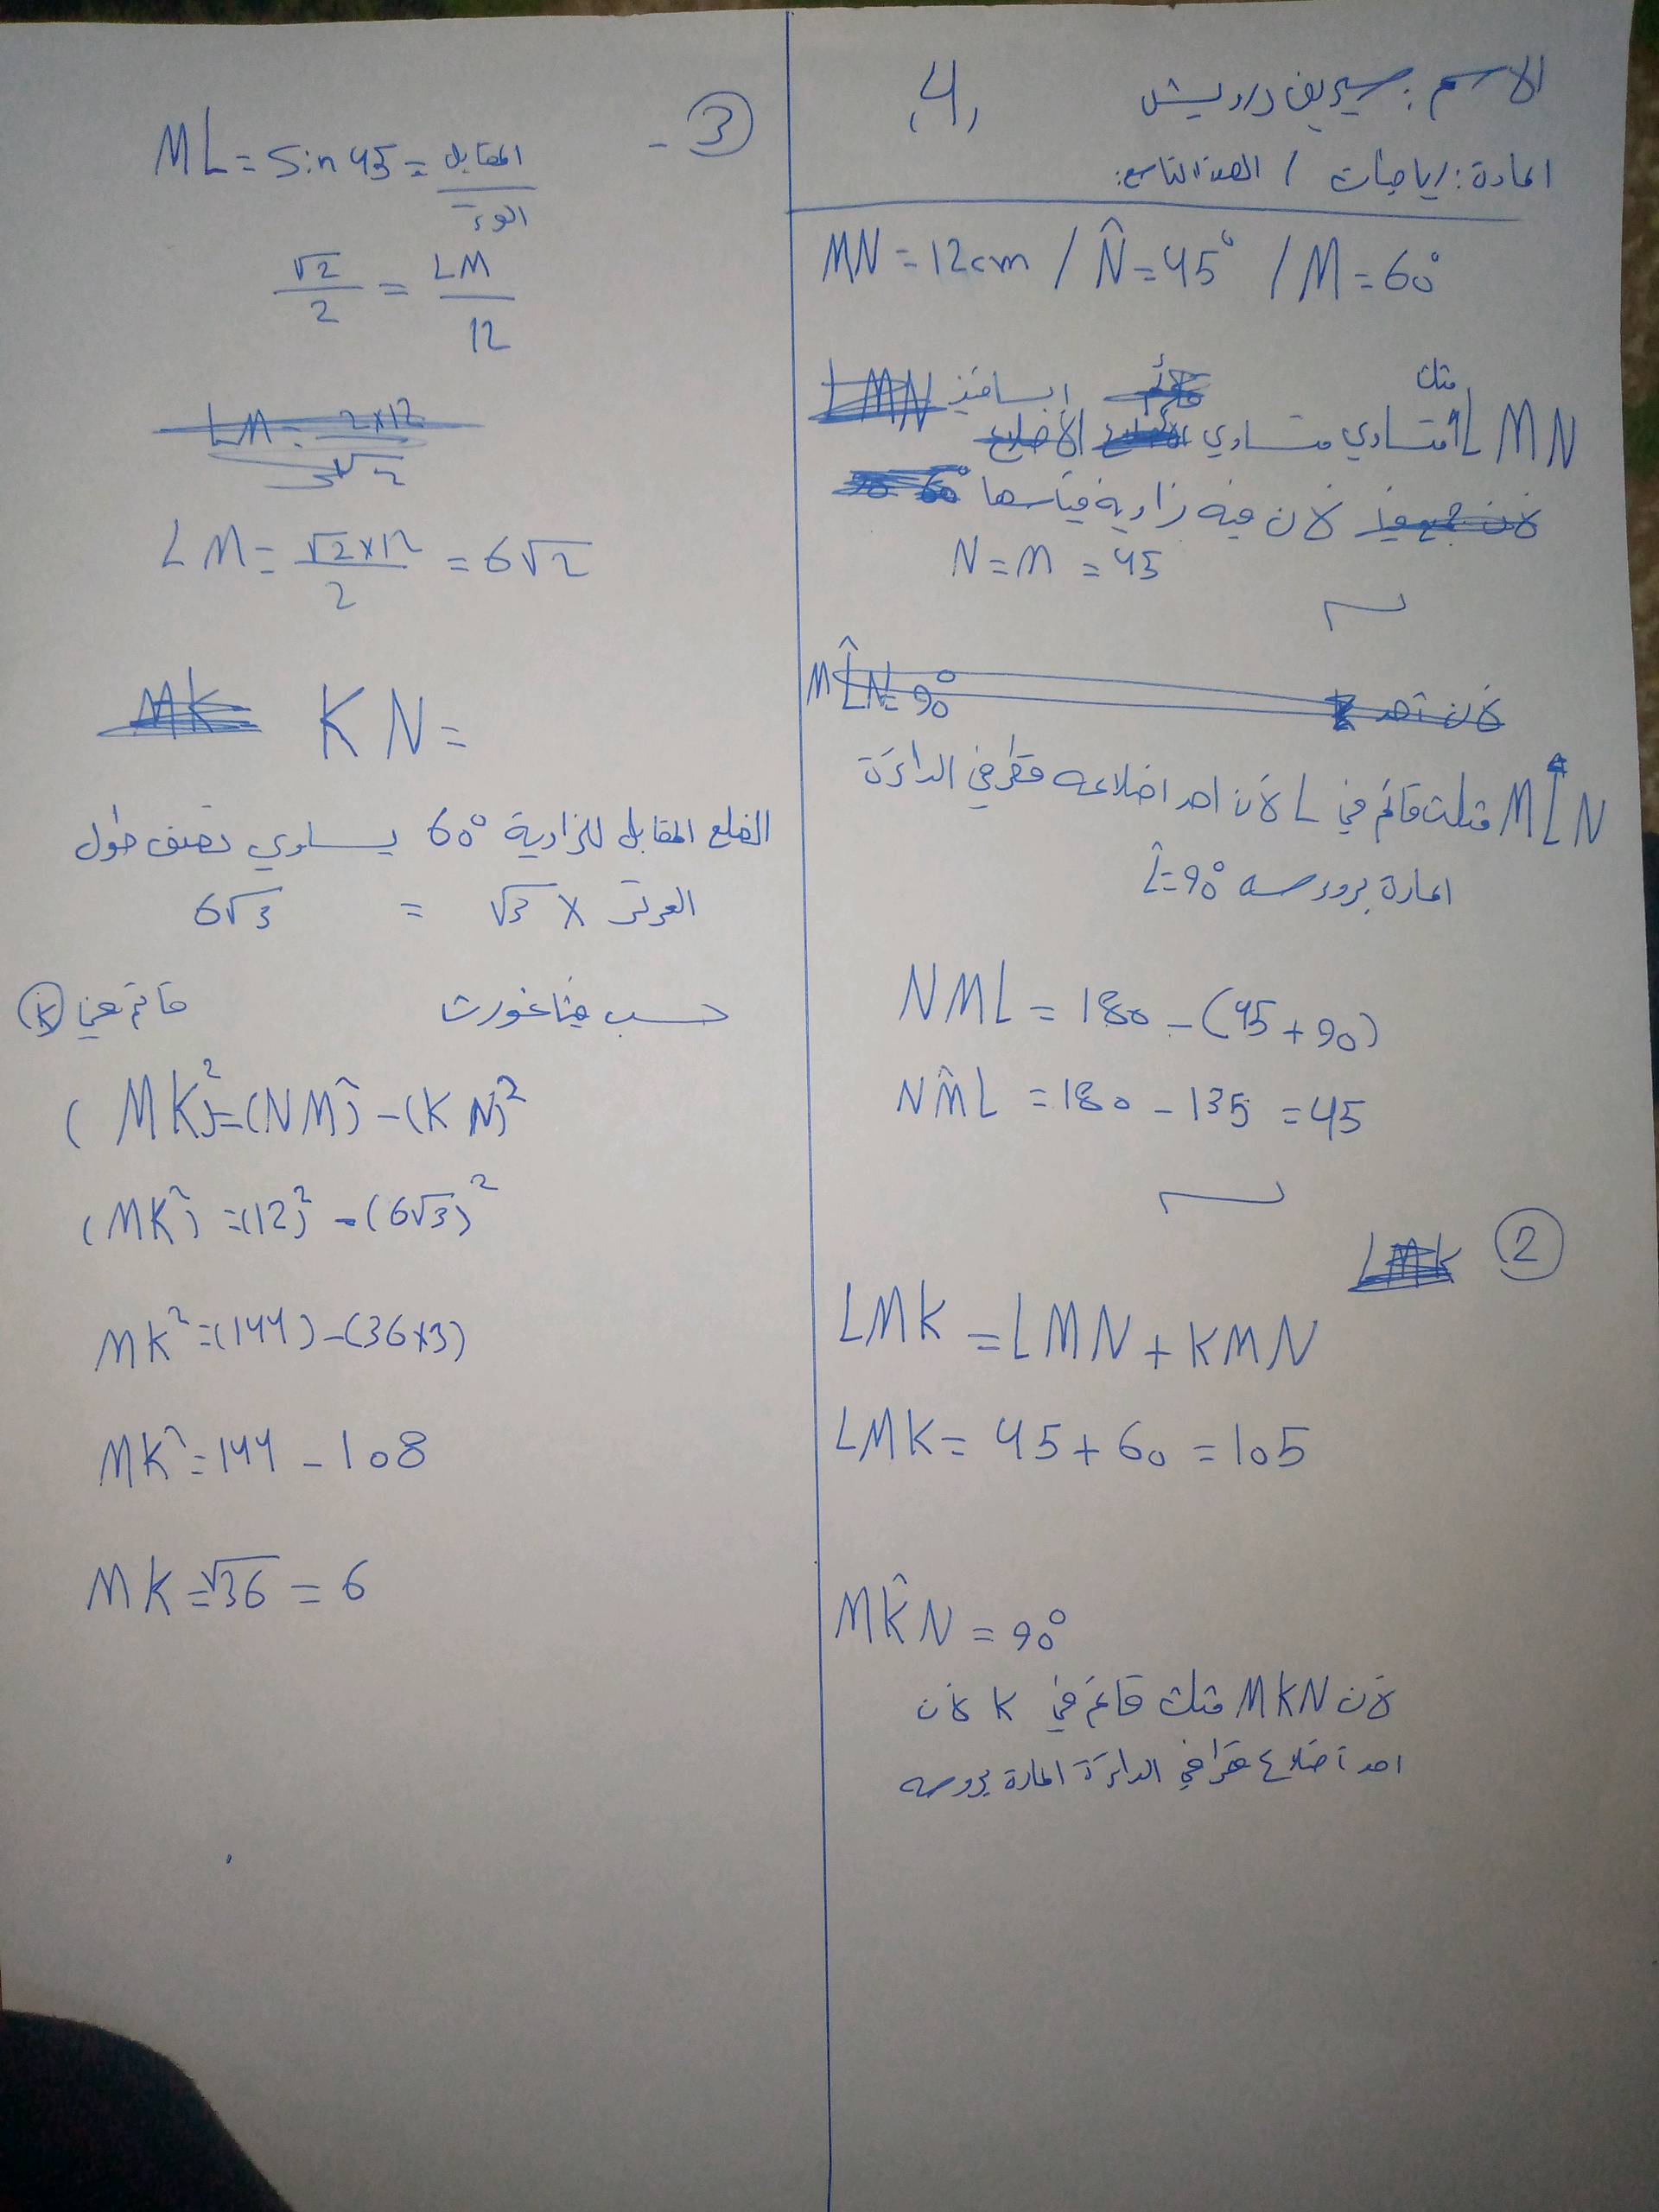 الاسم: سيريف درويش
4
المادة: رياضيات / الصف التاسع:
MN = 12cm / N̂ = 45° / M = 60°
LMN مثلث متساوي متساوي الساقين
لأن فيه زاوية قياسها
N = M = 45
MLN مثلث قائم في L لأن احد اضلاعه قطر في الدائرة
المارة برووسه L̂ = 90°
NML = 180 - (45 + 90)
NM̂L = 180 - 135 = 45
②
LMK = LMN + KMN
LMK = 45 + 60 = 105
MK̂N = 90°
لأن MKN مثلث قائم في K لأن
احد أضلاع قطرا في الدائرة المارة برووسه
③ -
ML = Sin 45 = المقابل / الوتر
√2/2 = LM/12
LM = √2×12/2 = 6√2
KN =
الضلع المقابل للزاوية 60° يساوي نصف طول
الوتر × √3 = 6√3
حسب فيثاغورث قائم في (K)
(MK)² = (NM)² - (KN)²
(MK)² = (12)² - (6√3)²
MK² = (144) - (36×3)
MK² = 144 - 108
MK = √36 = 6